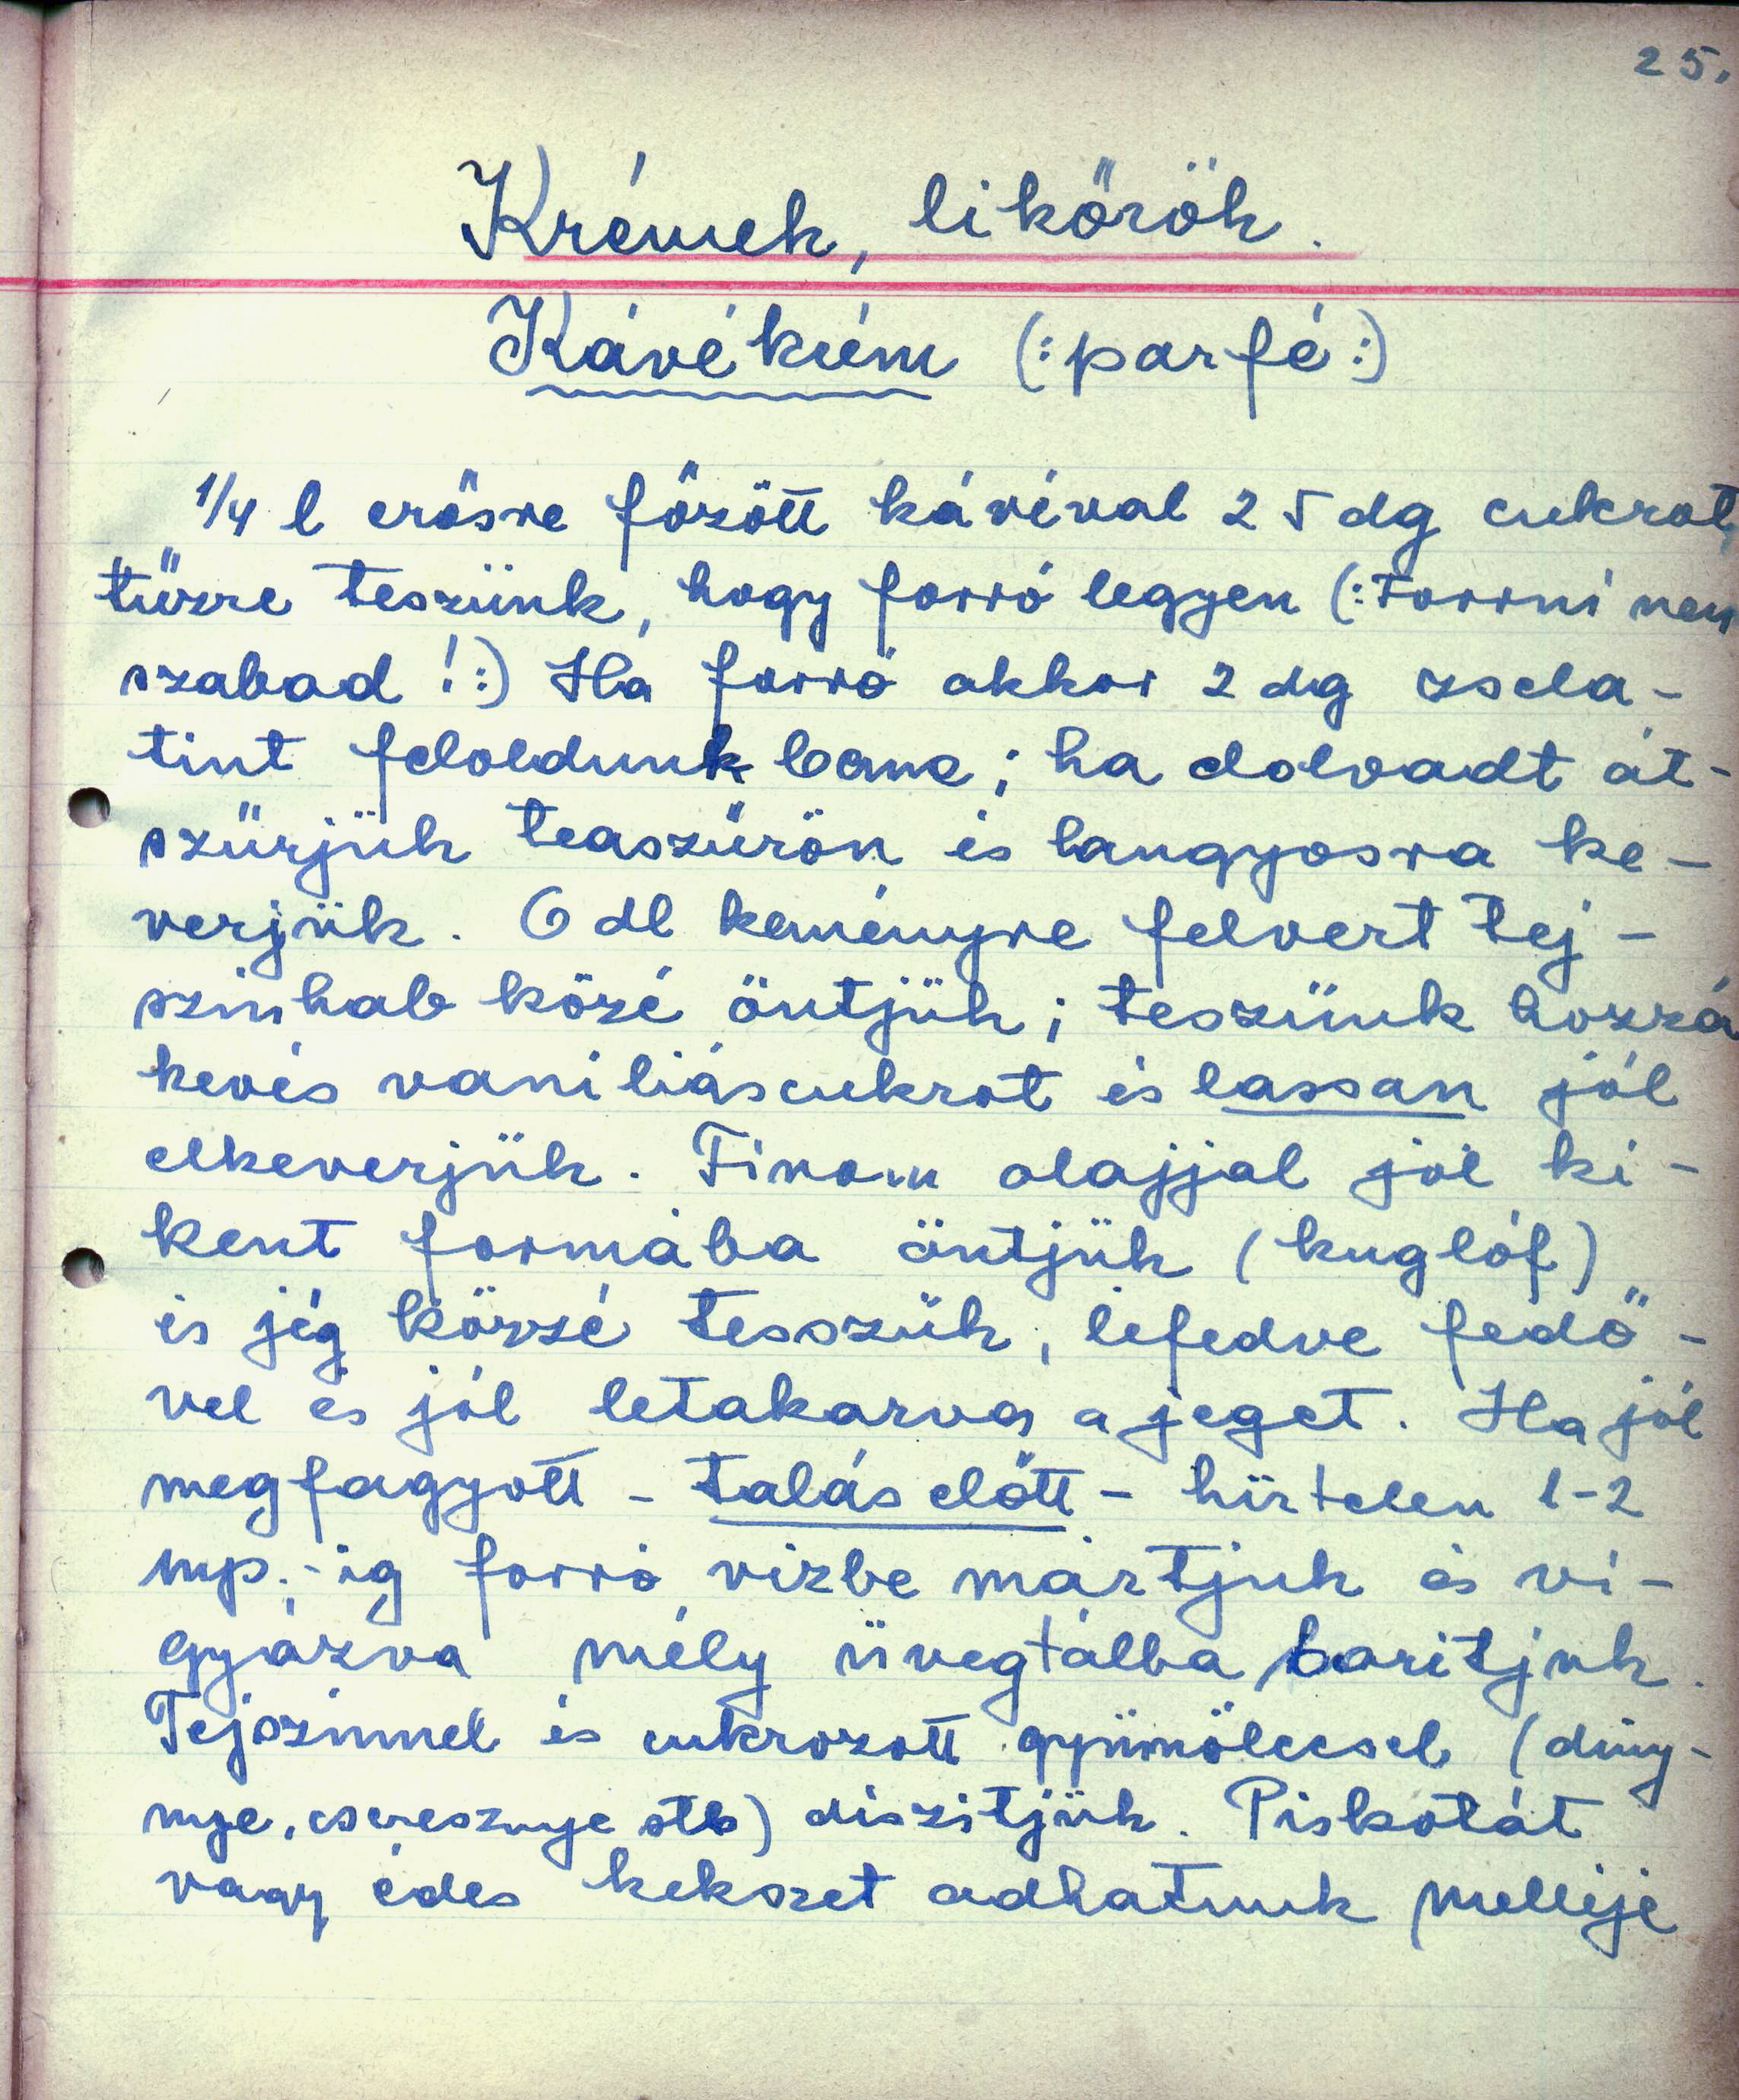 25.
Krémek, likőrök.
Kávékrém (: parfé :)
1/4 l erősre főzött kávéval 25 dg cukrot,
tűzre teszünk, hogy forró legyen (: Forrni nem
szabad !:) Ha forró akkor 2 dg zsela-
tint feloldunk benne; ha elolvadt át-
szűrjük teaszűrőn és langyosra ke-
verjük. 6 dl keményre felvert tej-
szinhab közé öntjük; teszünk hozzá
kevés vaniliáscukrot és lassan jól
elkeverjük. Finom olajjal jól ki-
kent formába öntjük (kuglóf)
és jég közzé tesszük, lefedve fedő-
vel és jól letakarva a jeget. Ha jól
megfagyott - talás előtt - hirtelen 1-2
mp.-ig forró vizbe mártjuk és vi-
gyázva mély üvegtálba boritjuk.
Tejszinnel és cukrozott gyümölccsel (diny-
nye, cseresznye stb) diszitjük. Piskotát
vagy édes kekszet adhatunk melléje